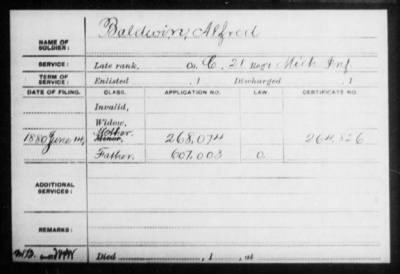 NAME OF SOLDIER: Baldwin, Alfred
SERVICE: Late rank, Co. C. 21 Reg't Mich Inf.
TERM OF SERVICE: Enlisted , 1 Discharged , 1
DATE OF FILING. CLASS. APPLICATION NO. LAW. CERTIFICATE NO.
Invalid,
Widow,
1880 June 14, Mother Minor, 268,074 264,826
Father. 607,003 O.
ADDITIONAL SERVICES:
REMARKS:
Died , 1 , at